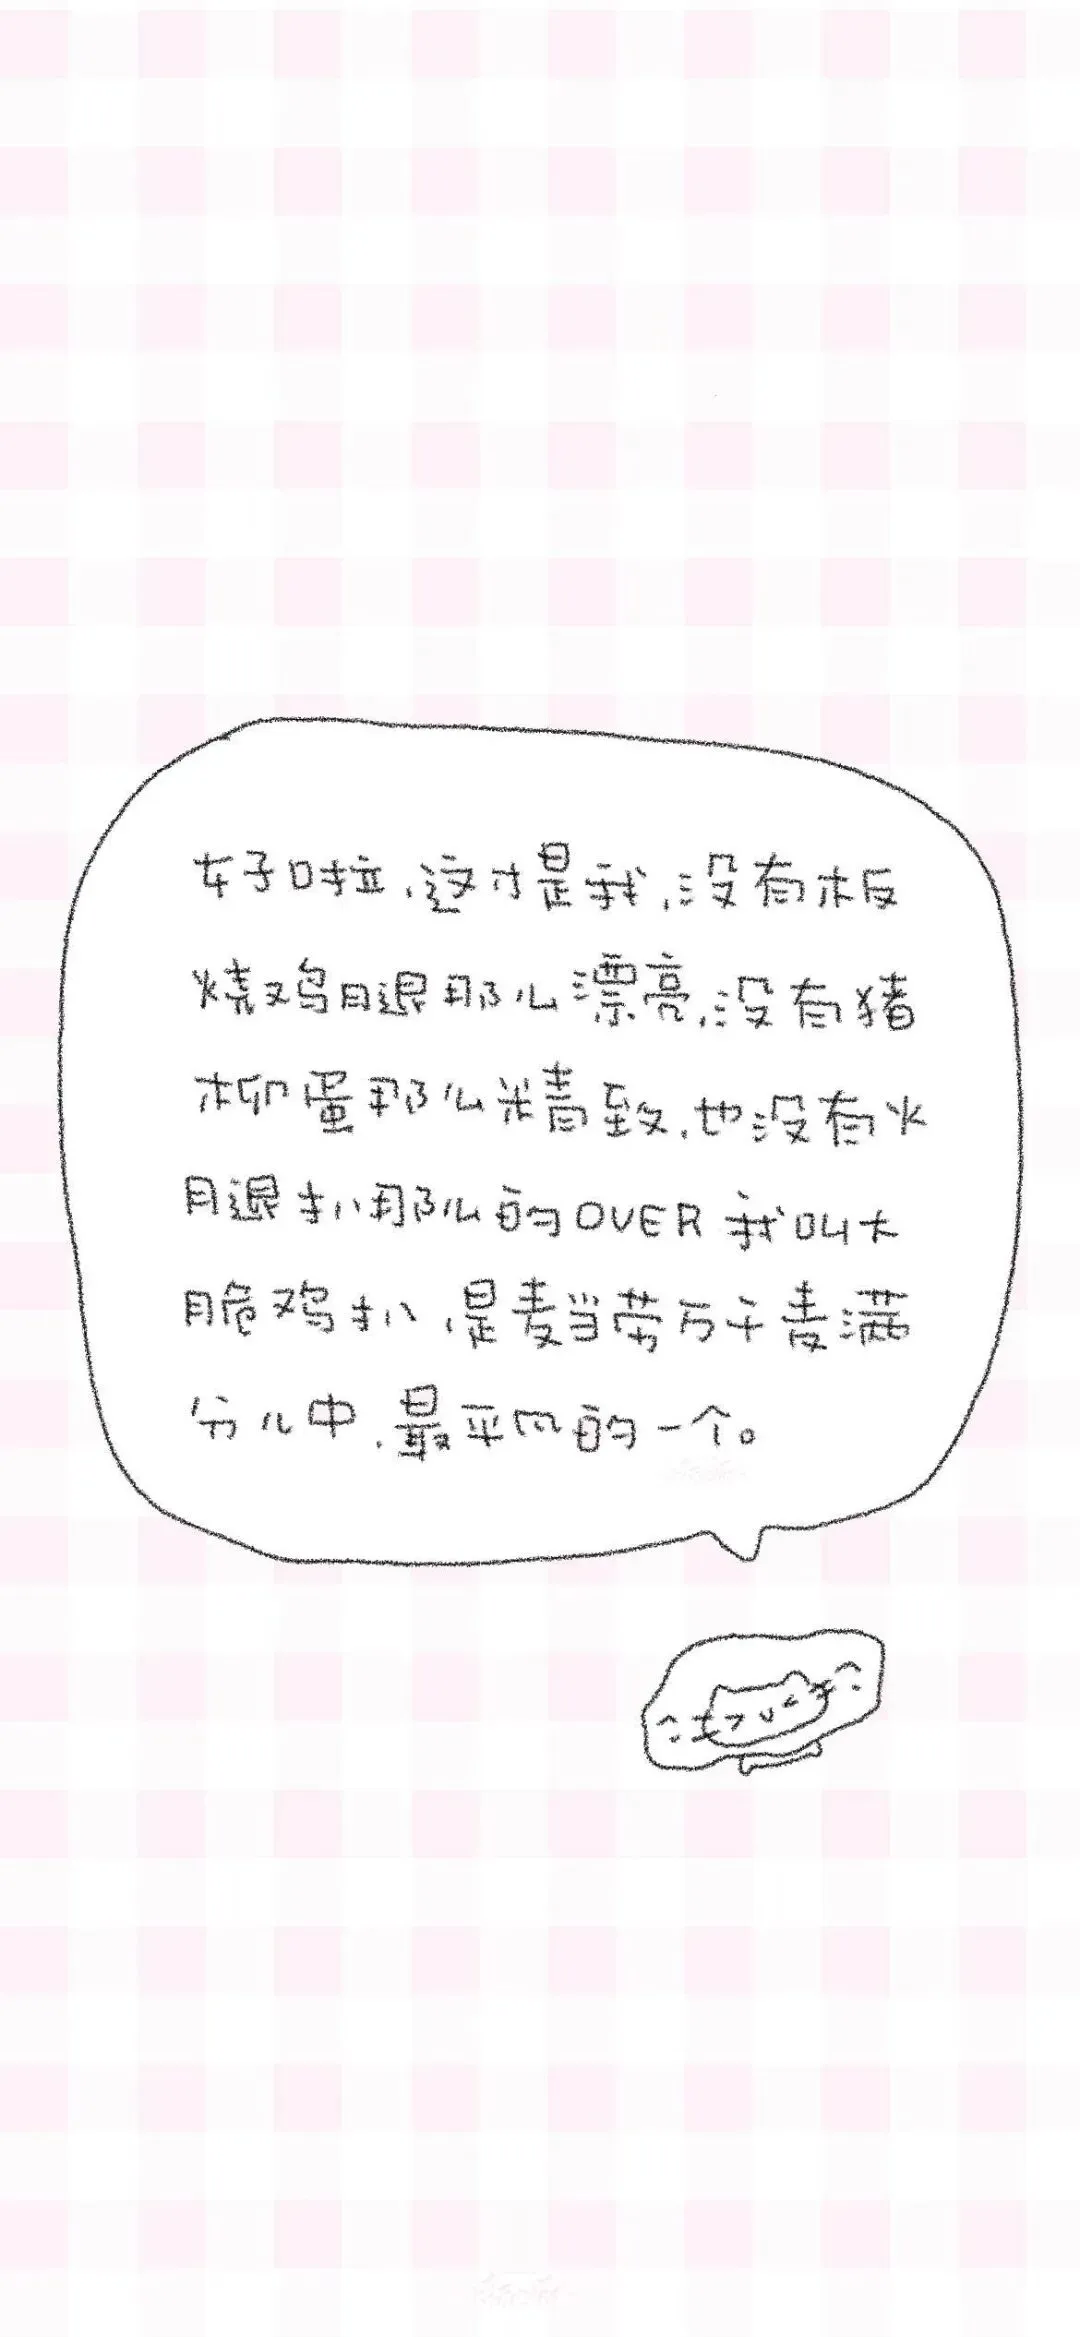 好啦，这才是我，没有板
烧鸡腿那么漂亮，没有猪
柳蛋那么精致，也没有火
腿扒那么的OVER 我叫大
脆鸡扒，是麦当劳万千麦满
分儿中，最平凡的一个。